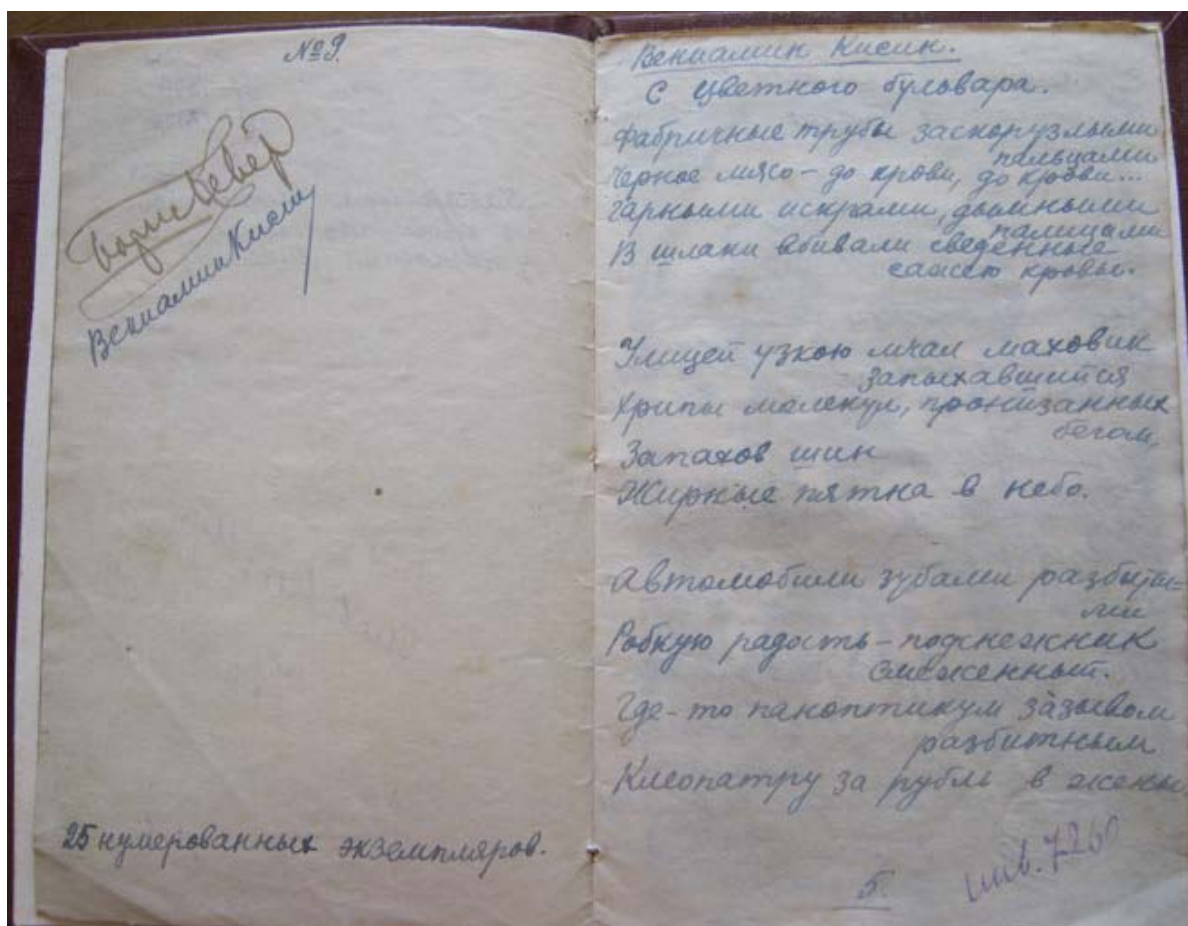 № 9.
Борис Невер
Вениамин Кисин
25 нумерованных экземпляров.
Вениамин Кисин.
С Цветного бульвара.
Фабричные трубы заскорузлыми
пальцами
Черное мясо – до крови, до крови...
Гарными искрами, дымными
палицами
В шлаки вбивали сведенные
сажею кровы.
Улицей узкою мчал маховик
запыхавшийся
Хрипы молекул, пронизанных
бегом,
Запахов шин
Жирные пятна в небо.
Автомобили зубами разбиты-
ми
Робкую радость – подснежник
смеженный.
Где-то паноптикум за́зывом
разбитным
Клеопатру за рубль в жены
5.
инв. 7260